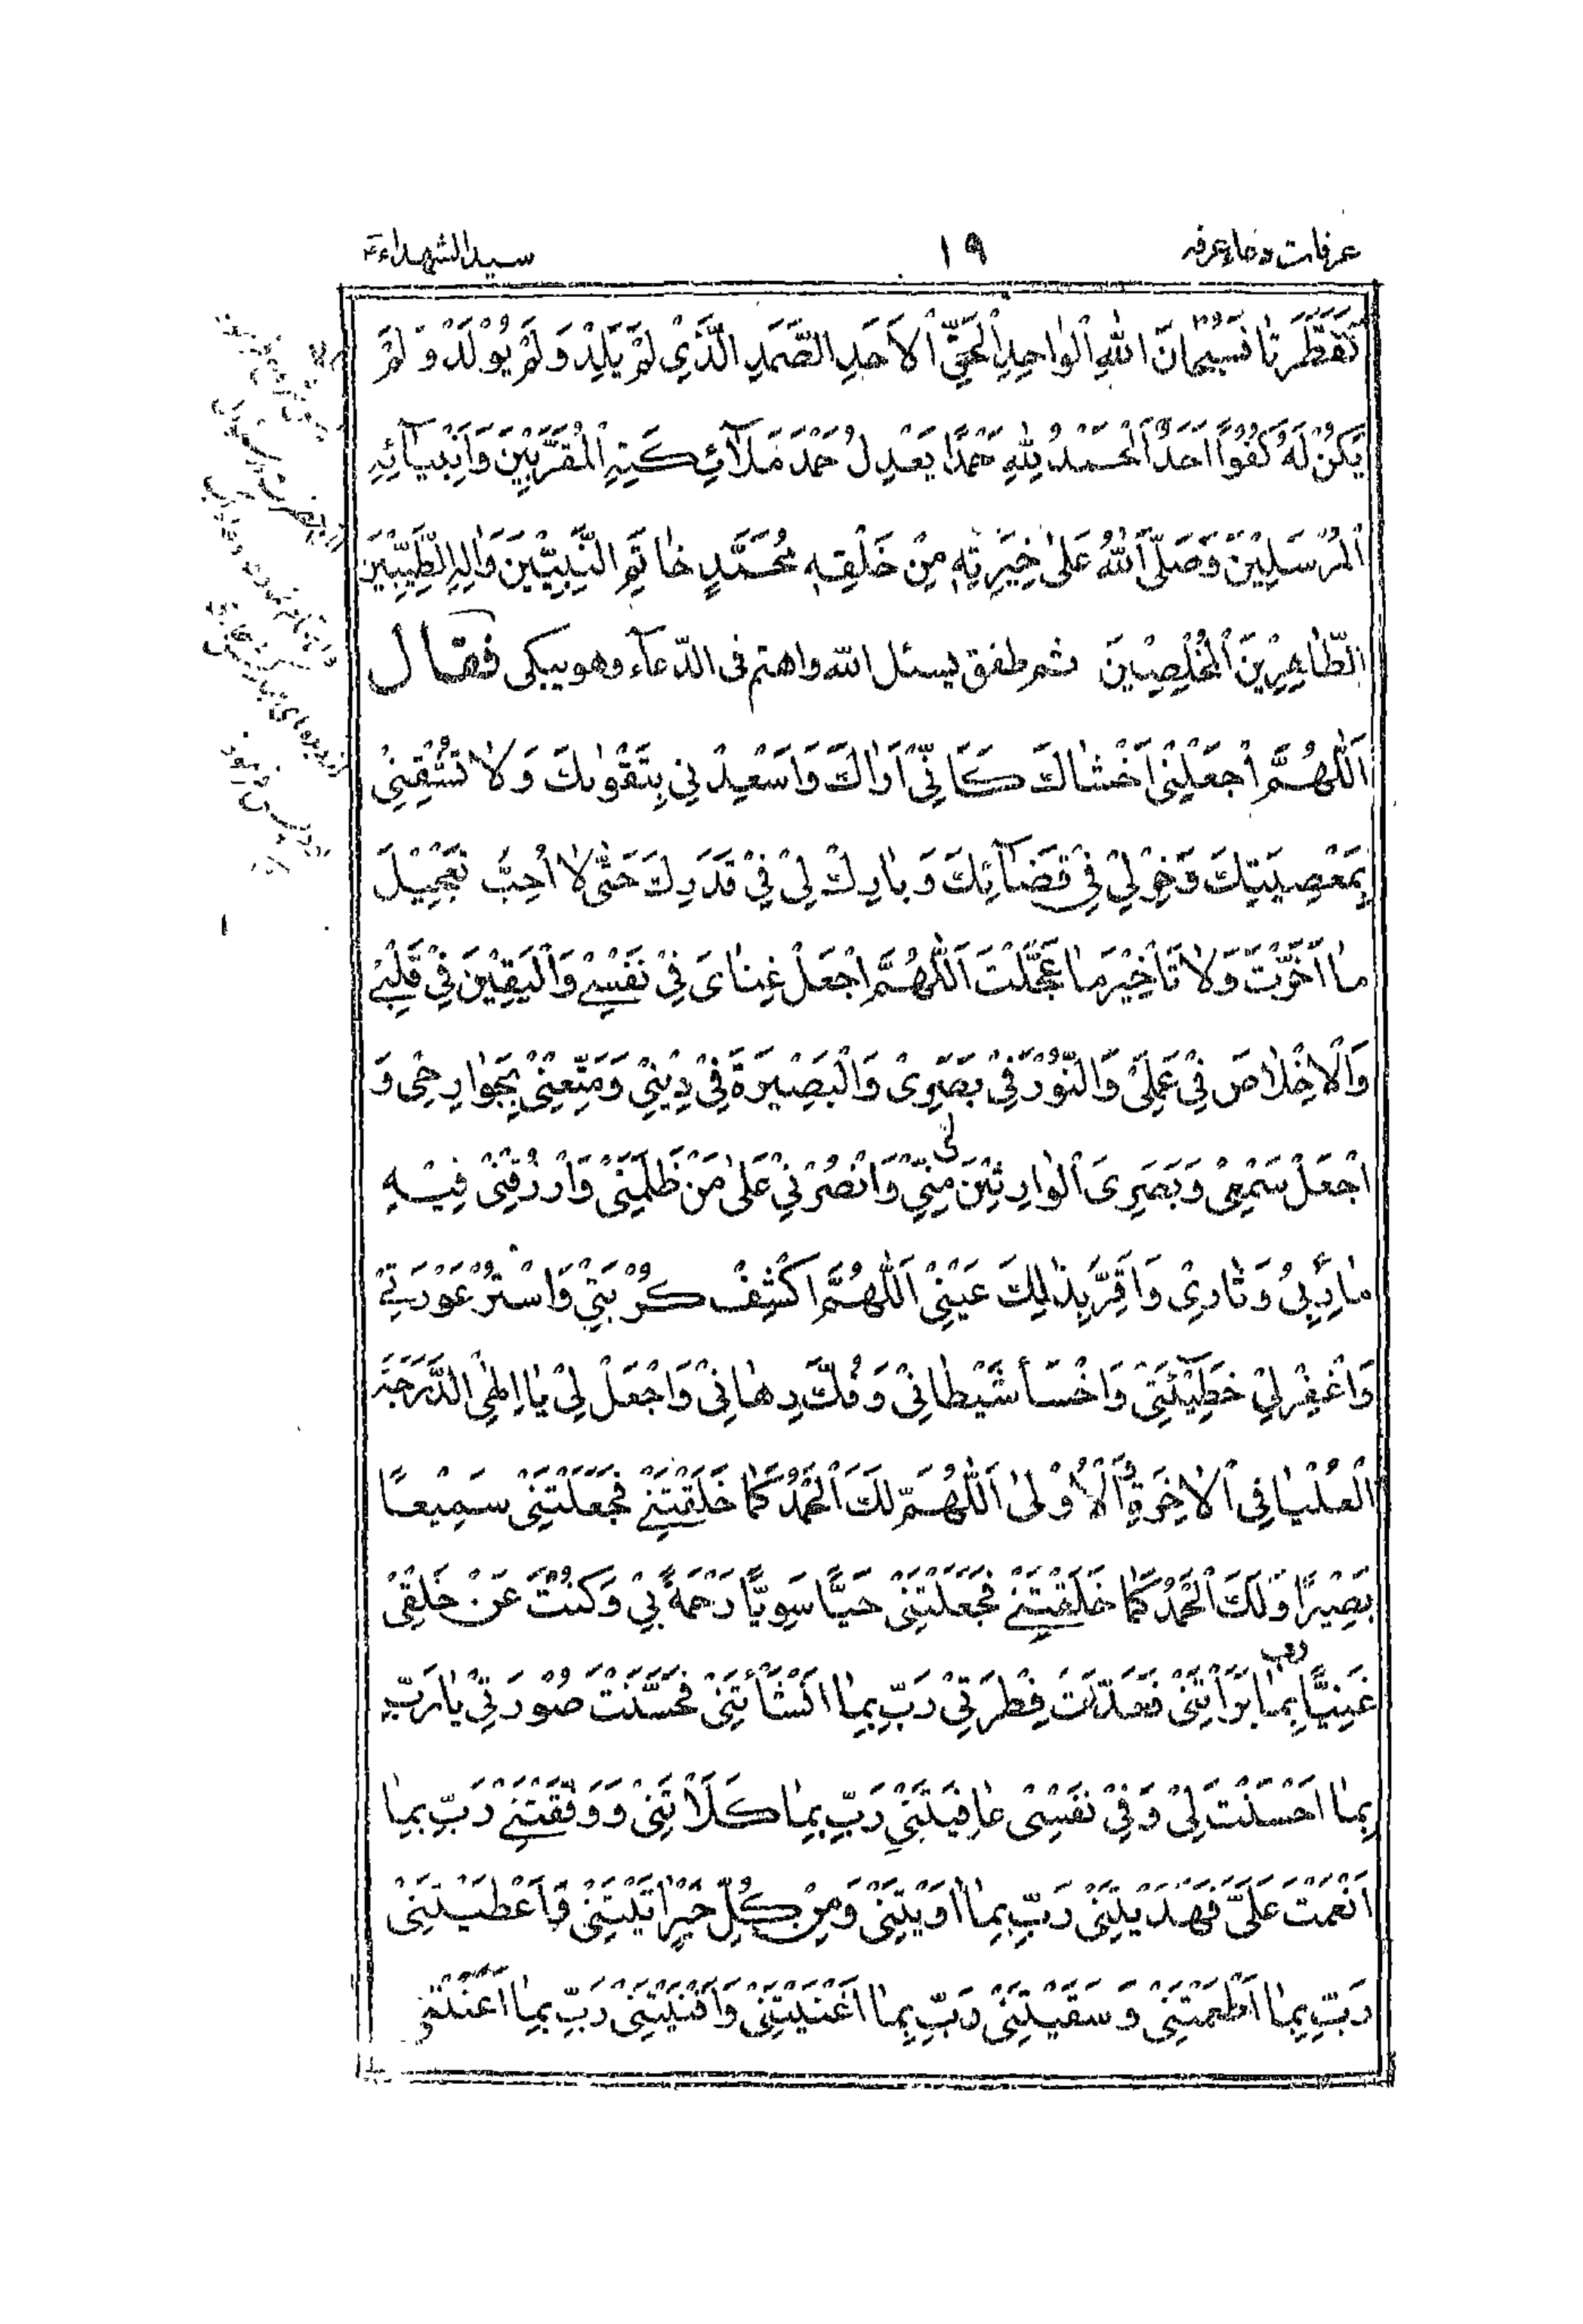 عرفات دعاء عرفه ١٩ سيد الشهداء ع
تَفَطَّرَتَا فَسُبْحَانَ اللهِ الْوَاحِدِ الْحَقِّ الْاَحَدِ الصَّمَدِ الَّذِيْ لَمْ يَلِدْ وَلَمْ يُوْلَدْ وَلَمْ
يَكُنْ لَهُ كُفُوًا اَحَدٌ اَلْحَمْدُ لِلّٰهِ حَمْدًا يَعْدِلُ حَمْدَ مَلَآئِكَتِهِ الْمُقَرَّبِيْنَ وَاَنْبِيَآئِهِ
الْمُرْسَلِيْنَ وَصَلَّى اللهُ عَلىٰ خِيَرَتِهٖ مِنْ خَلْقِهٖ مُحَمَّدٍ خَاتَمِ النَّبِيِّيْنَ وَاٰلِهِ الطَّيِّبِيْنَ
الطَّاهِرِيْنَ الْمُخْلَصِيْنَ ثم طفق يسئل الله واهتم فى الدّعآء وهو يبكى فقال
اَللّٰهُمَّ اجْعَلْنِىْ اَخْشَاكَ كَاَنِّىْ اَرَاكَ وَاَسْعِدْنِي بِتَقْوٰىكَ وَلَا تُشْقِنِىْ
بِمَعْصِيَتِكَ وَخِرْ لِيْ فِيْ قَضَآئِكَ وَبَارِكْ لِيْ فِيْ قَدَرِكَ حَتّٰى لَا اُحِبَّ تَعْجِيْلَ
مَا اَخَّرْتَ وَلَا تَاْخِيْرَ مَا عَجَّلْتَ اَللّٰهُمَّ اجْعَلْ غِنَاىَ فِيْ نَفْسِىْ وَالْيَقِيْنَ فِيْ قَلْبِىْ
وَالْاِخْلَاصَ فِيْ عَمَلِىْ وَالنُّوْرَ فِيْ بَصَرِىْ وَالْبَصِيْرَةَ فِيْ دِيْنِىْ وَمَتِّعْنِىْ بِجَوَارِحِى وَ
اجْعَلْ سَمْعِىْ وَبَصَرِىَ الْوَارِثَيْنِ مِنِّىْ وَانْصُرْنِيْ عَلىٰ مَنْ ظَلَمَنِىْ وَارْزُقْنِىْ فِيْهِ
مَاٰرِبِىْ وَثَارِىْ وَاَقِرَّ بِذٰلِكَ عَيْنِىْ اَللّٰهُمَّ اكْشِفْ كُرْبَتِىْ وَاسْتُرْ عَوْرَتِىْ
وَاغْفِرْ لِيْ خَطِيْٓئَتِىْ وَاخْسَأْ شَيْطَانِىْ وَفُكَّ رِهَانِىْ وَاجْعَلْ لِىْ يَا اِلٰهِى الدَّرَجَةَ
الْعُلْيَا فِى الْاٰخِرَةِ وَالْاُوْلىٰ اَللّٰهُمَّ لَكَ الْحَمْدُ كَمَا خَلَقْتَنِىْ فَجَعَلْتَنِىْ سَمِيْعًا
بَصِيْرًا وَلَكَ الْحَمْدُ كَمَا خَلَقْتَنِىْ فَجَعَلْتَنِىْ حَيًّا سَوِيًّا رَحْمَةً بِيْ وَكُنْتَ عَنْ خَلْقِىْ
غَنِيًّا رب بِمَا بَرَأْتَنِىْ فَعَدَّلْتَ فِطْرَتِىْ رَبِّ بِمَا اَنْشَأْتَنِىْ فَحَسَّنْتَ صُوْرَتِىْ يَا رَبِّ
بِمَا اَحْسَنْتَ لِىْ وَفِيْ نَفْسِىْ عَافَيْتَنِىْ رَبِّ بِمَا كَلَاْتَنِىْ وَوَفَّقْتَنِىْ رَبِّ بِمَا
اَنْعَمْتَ عَلَىَّ فَهَدَيْتَنِىْ رَبِّ بِمَا اٰوَيْتَنِىْ وَمِنْ كُلِّ خَيْرٍ اٰتَيْتَنِىْ وَاَعْطَيْتَنِىْ
رَبِّ بِمَا اَطْعَمْتَنِىْ وَسَقَيْتَنِىْ رَبِّ بِمَا اَغْنَيْتَنِىْ وَاَقْنَيْتَنِىْ رَبِّ بِمَا اَعَنْتَنِىْ